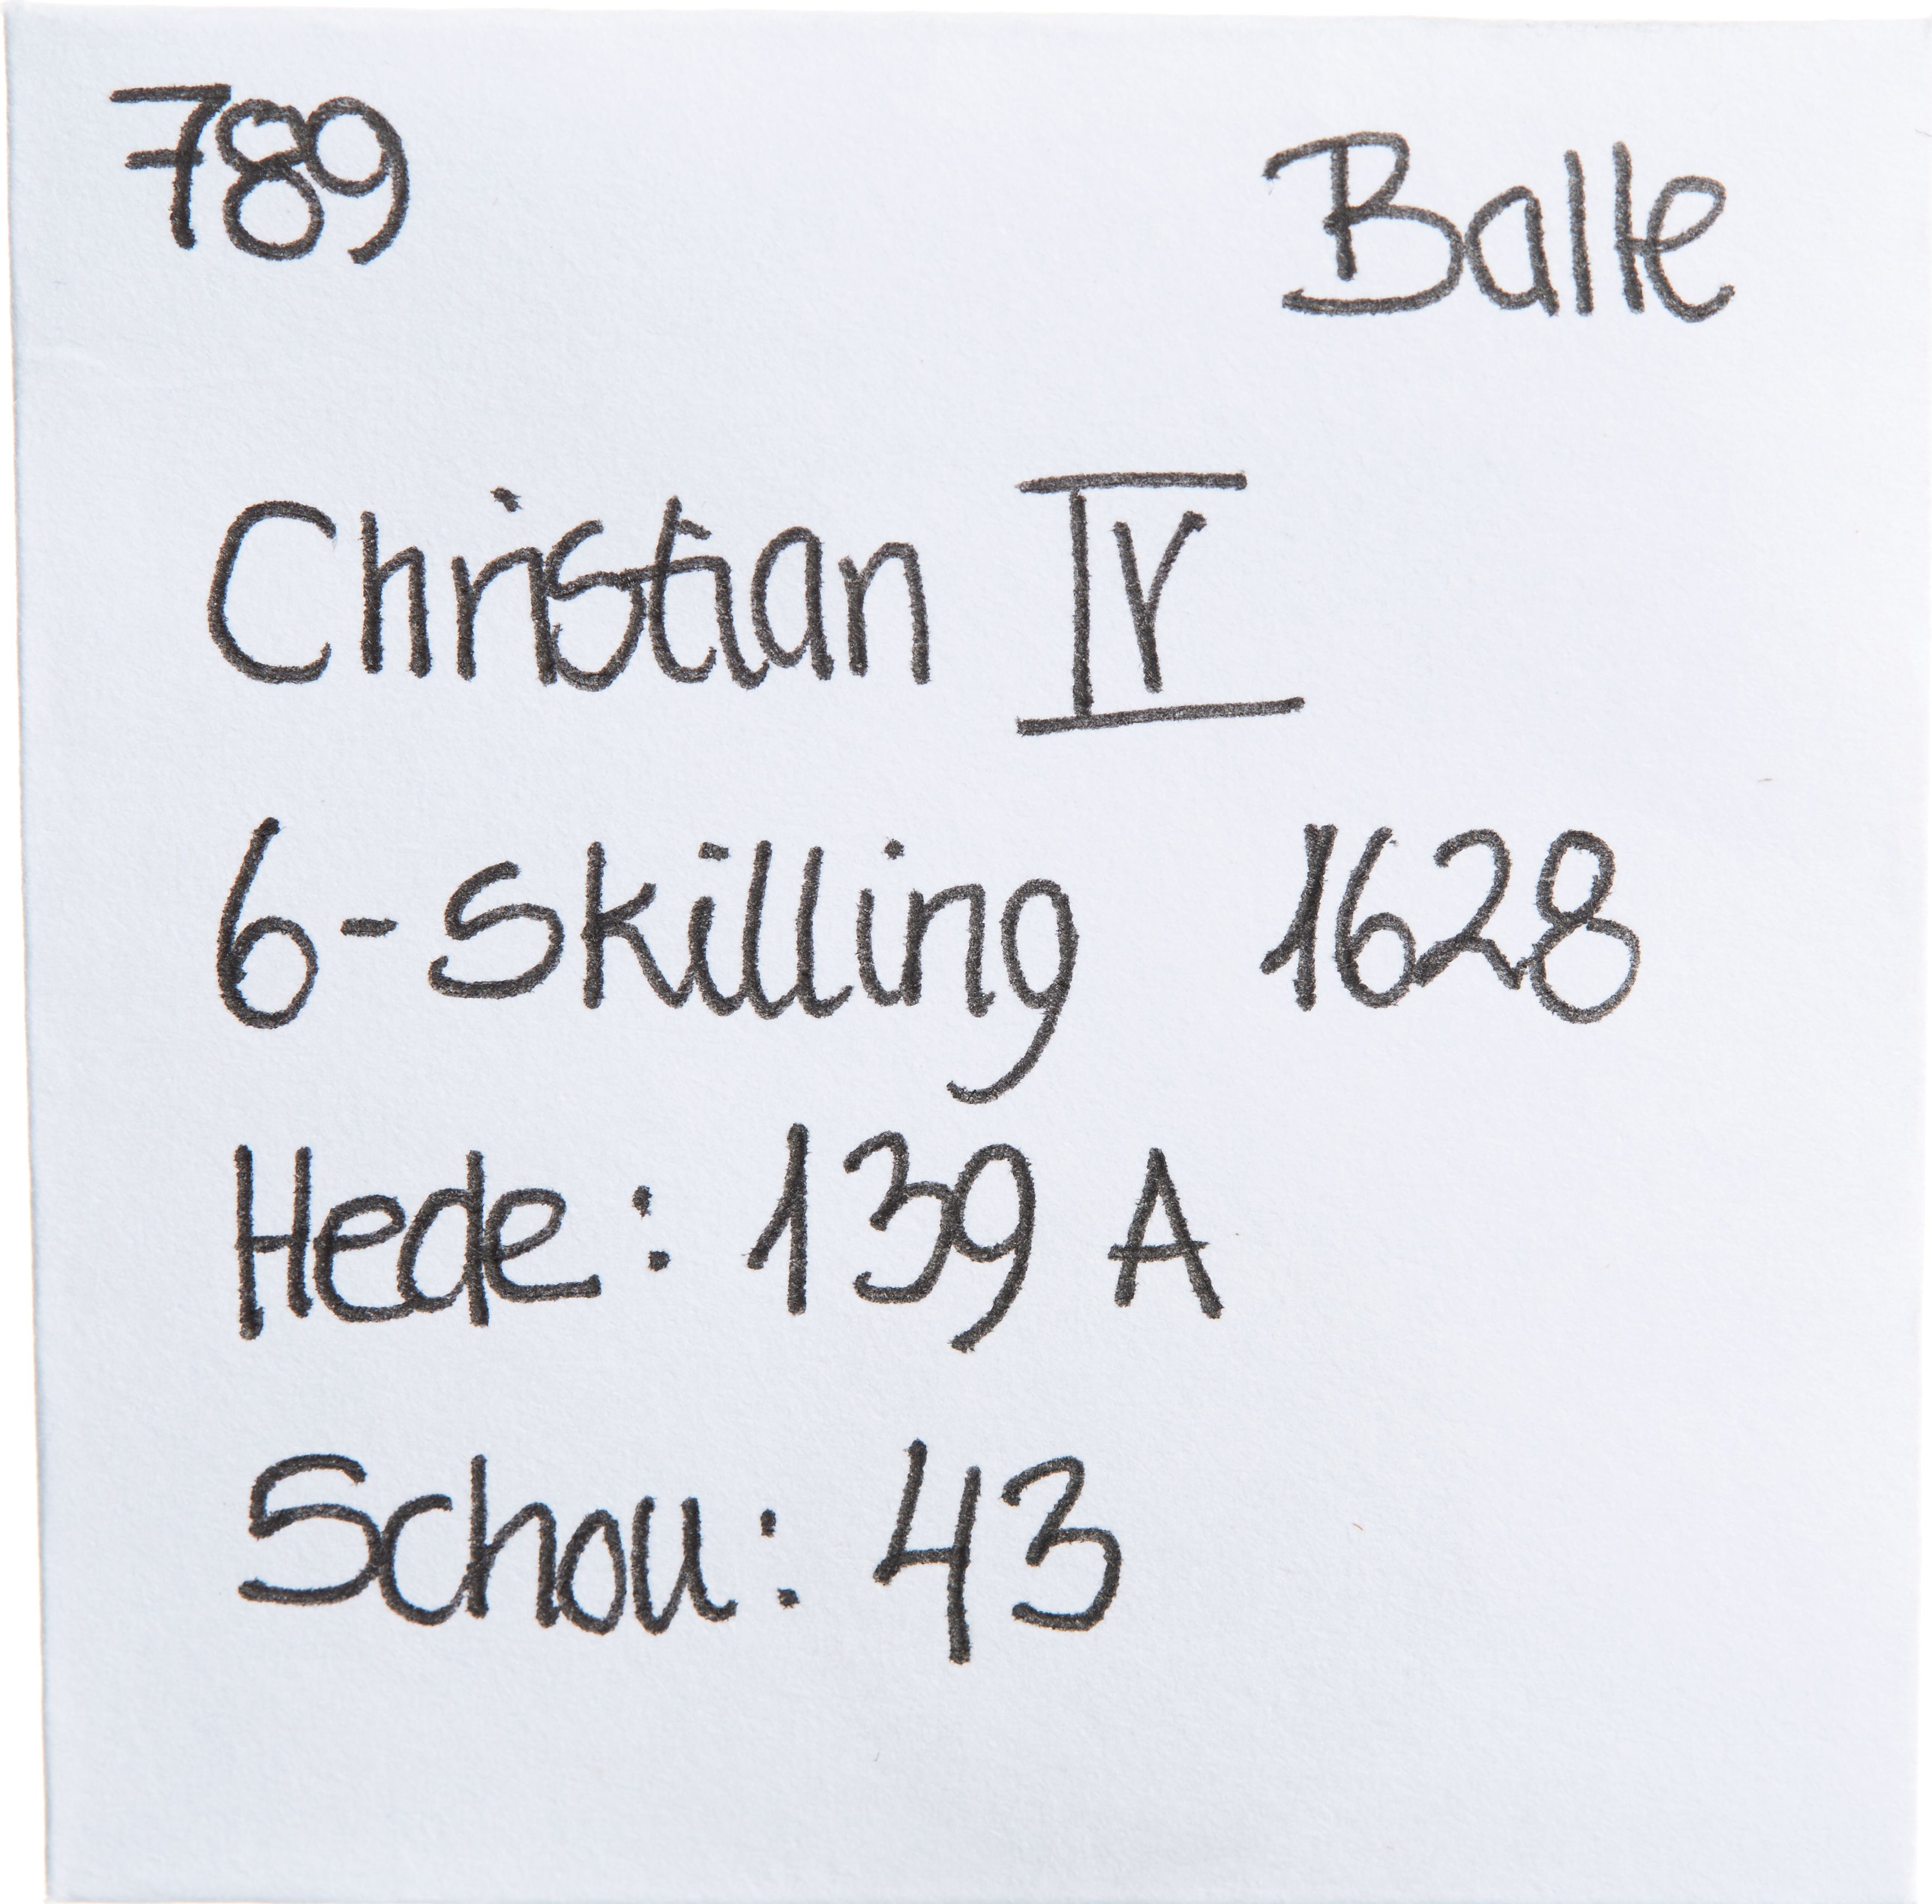 789 Balle
Christian IV
6-Skilling 1628
Hede: 139 A
Schou: 43